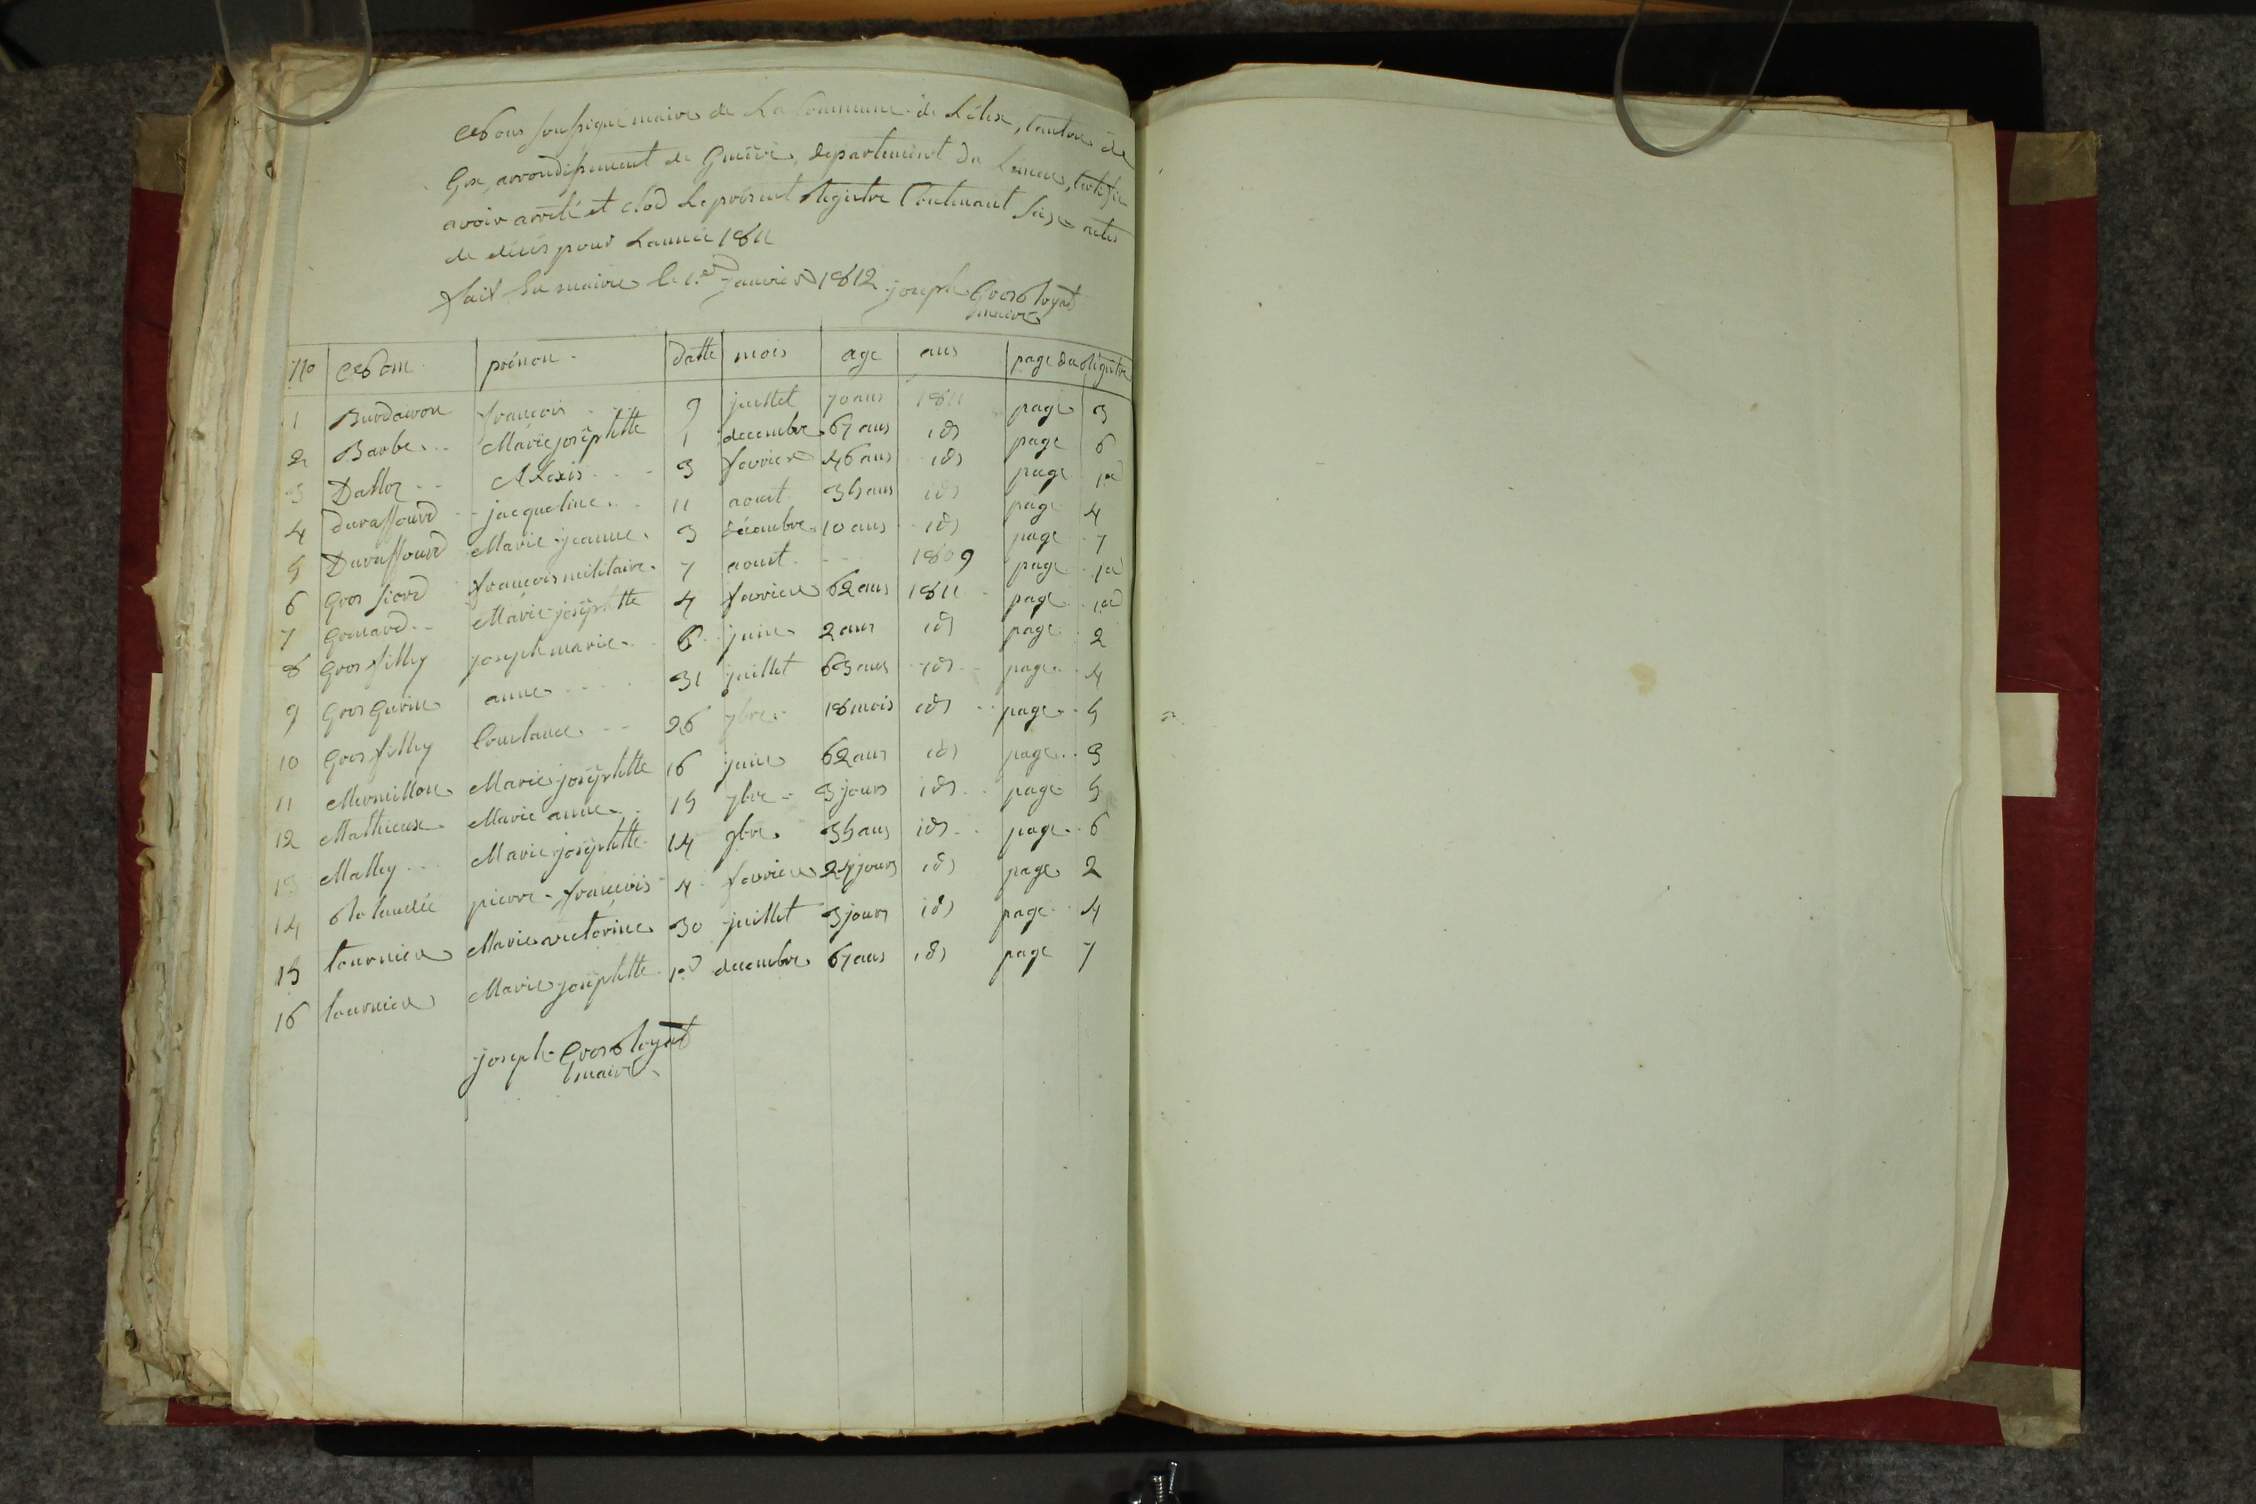 Nous soussigné maire de La Commune de Lélex, Canton de
Gex, arrondissement de Genève, departement du Léman, Certifie
avoir arrêté et clod Le présent Registre Contenant seize actes
de décès pour Lannée 1811
fait En mairie le 1.er janvier 1812 joseph Grosroyat
maire
No Nom prénom datte mois age ans page du Régistre
1 Burdavon françois 9 juillet 70 ans 1811 page 3
2 Barbe Marie josephtte 1 decembre 67 ans id page 6
3 Dalloz Alexis 3 fevrier 46 ans id page 1er
4 duraffourd jacqueline 11 aout 35 ans id page 4
5 Duraffourd Marie jeanne 3 décembre 10 ans id page 7
6 Gros fiord françois militaire 7 aout 1809 page 1er
7 Grenard Marie josephtte 4 fevrier 62 ans 1811 page 1er
8 Gros filley joseph marie 6 juin 2 ans id page 2
9 Gros Gurin anne 31 juillet 63 ans id page 4
10 Gros filley Constance 26 7bre 18 mois id page 5
11 Mermillon Marie josephtte 16 juin 62 ans id page 3
12 Mathieux Marie anne 15 7bre 3 jours id page 5
13 Malley Marie josephtte 14 9bre 35 ans id page 6
14 pierre françois 4 fevrier 24 jours id page 2
15 tournier Marie victorine 30 juillet 3 jours id page 4
16 tournier Marie josephtte 1er decembre 67 ans id page 7
joseph Grosroyat
maire